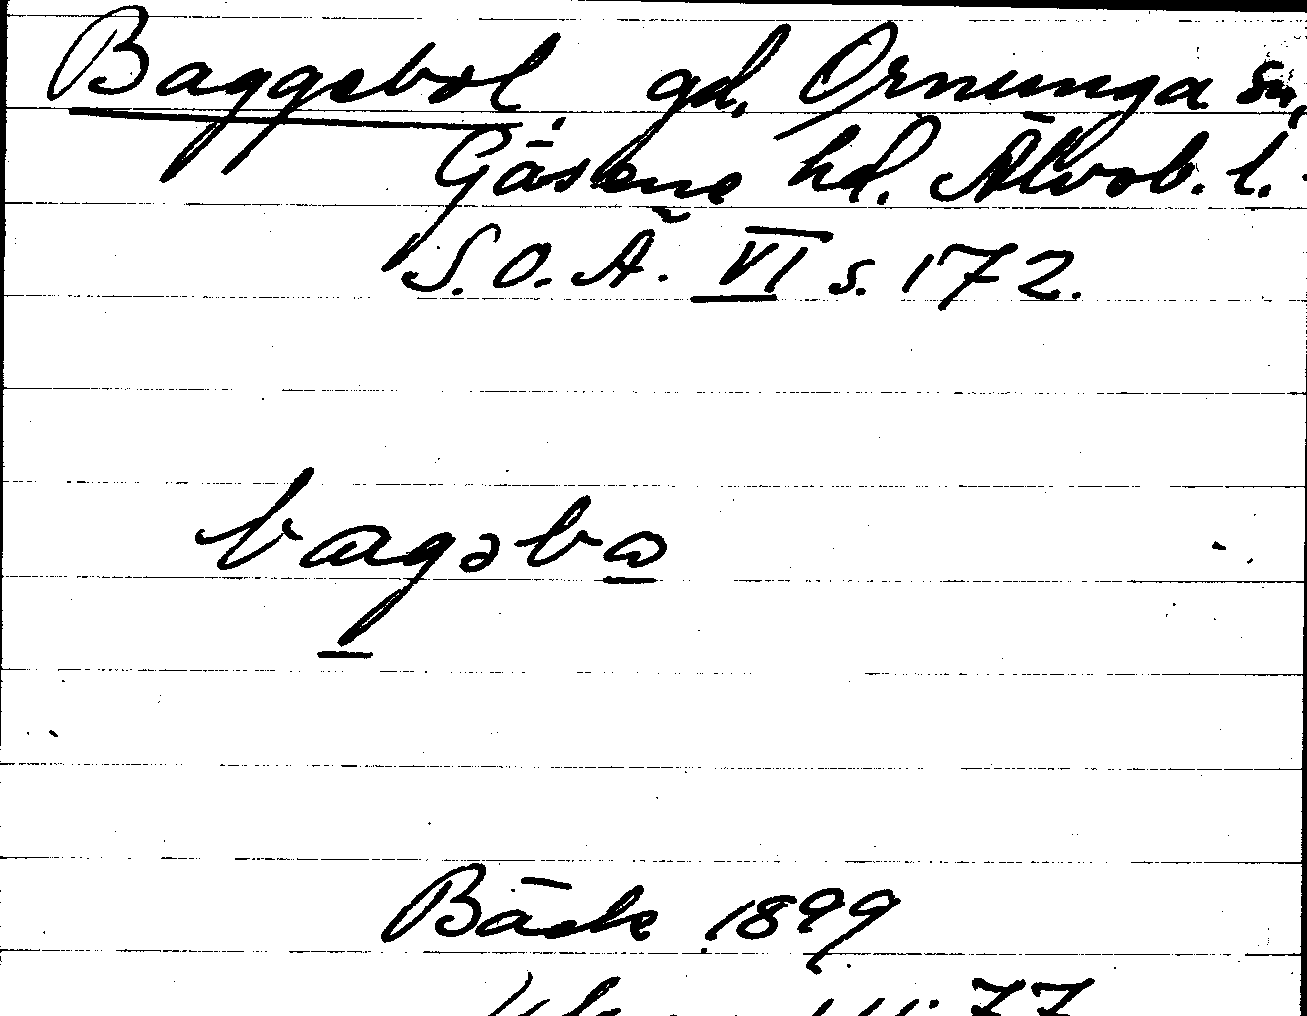 Baggebol, gd, Ornunga sn,
Gäsene hd. Älvsb. l.
S.O.Ä. VI s. 172.
bagəbω
Bäck 1899
77